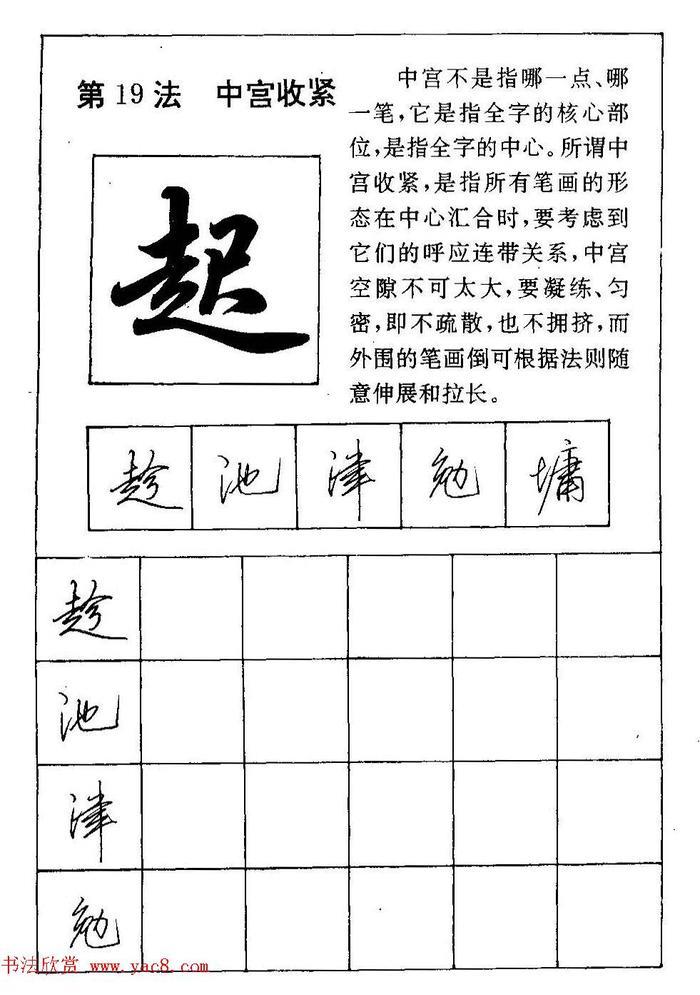 第19法 中宫收紧
中宫不是指哪一点、哪
一笔,它是指全字的核心部
位,是指全字的中心。所谓中
宫收紧,是指所有笔画的形
态在中心汇合时,要考虑到
它们的呼应连带关系,中宫
空隙不可太大,要凝练、匀
密,即不疏散,也不拥挤,而
外围的笔画倒可根据法则随
意伸展和拉长。
起
趁 池 津 勉 墉
趁
池
津
勉
书法欣赏 www.yac8.com